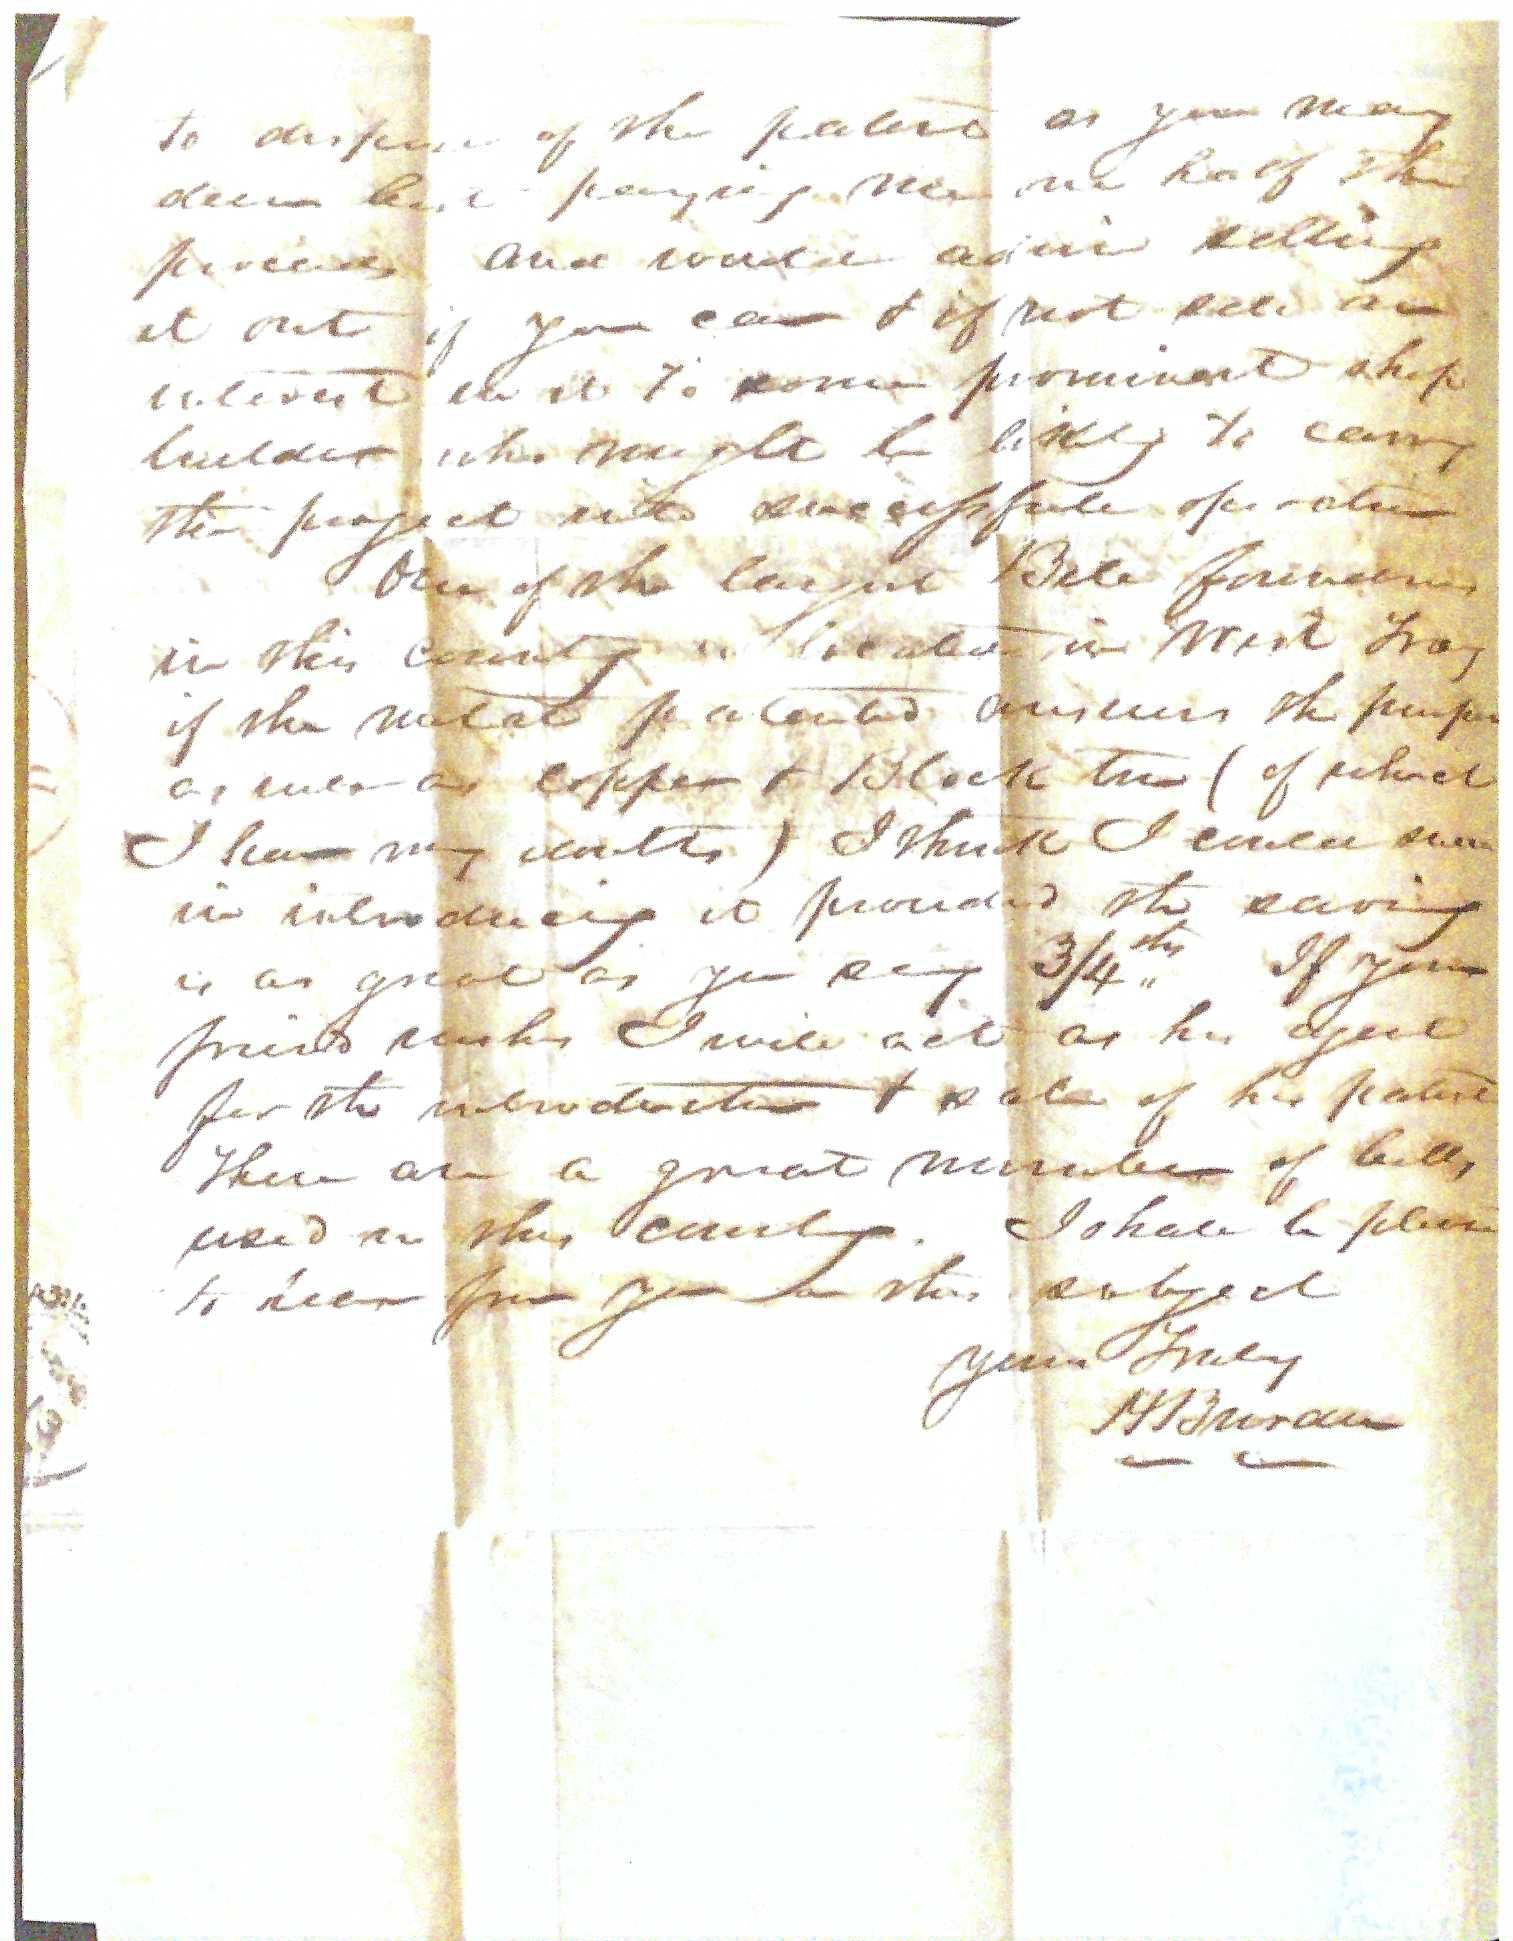 to dispose of the patent as you may
deem best paying me one half the
proceeds and would advise selling
it out if you can & if not sell an
interest in it to some prominent ship
builder who might be likely to carry
the project into successful operation
One of the largest Bell founderies
in this country is located in West Troy
if the metal patented answers the purpose
as well as copper & Block tin (of which
I have my doubts) I think I could
in introducing it provided the saving
is as great as you say 3/4ths If your
friend wishes I will act as his agent
for the introduction & sale of his patent
There are a great number of bells
used in this country. I shall be pleased
to hear from you on this subject
Yours Truly
H Burden